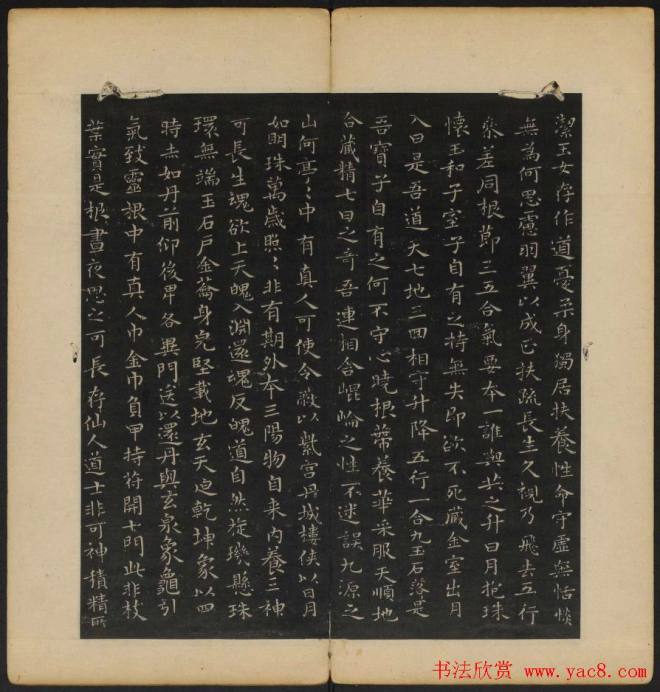 潔玉女存作道憂柔身獨居扶養性命守虛無恬惔
無為何思慮羽翼以成正扶疏長生久視乃飛去五行
參差同根節三五合氣要本一誰與共之升日月抱珠
懷玉和子室子自有之持無失即欲不死藏金室出月
入日是吾道天七地三回相守升降五行一合九玉石落是
吾寶子自有之何不守心曉根蒂養華采服天順地
合藏精七日之奇吾連相合崐崘之性不迷誤九源之
山何亭〻中有真人可使令蔽以紫宮丹城樓俠以日月
如明珠萬歲照〻非有期外本三陽物自来內養三神
可長生魂欲上天魄入淵還魂反魄道自然旋璣懸珠
環無端玉石戶金籥身完堅載地玄天迫乾坤象以四
時赤如丹前仰後卑各異門送以還丹與玄泉象龜引
氣致靈根中有真人巾金巾負甲持符開七門此非枝
葉實是根晝夜思之可長存仙人道士非可神積精所
书法欣赏 www.yac8.com